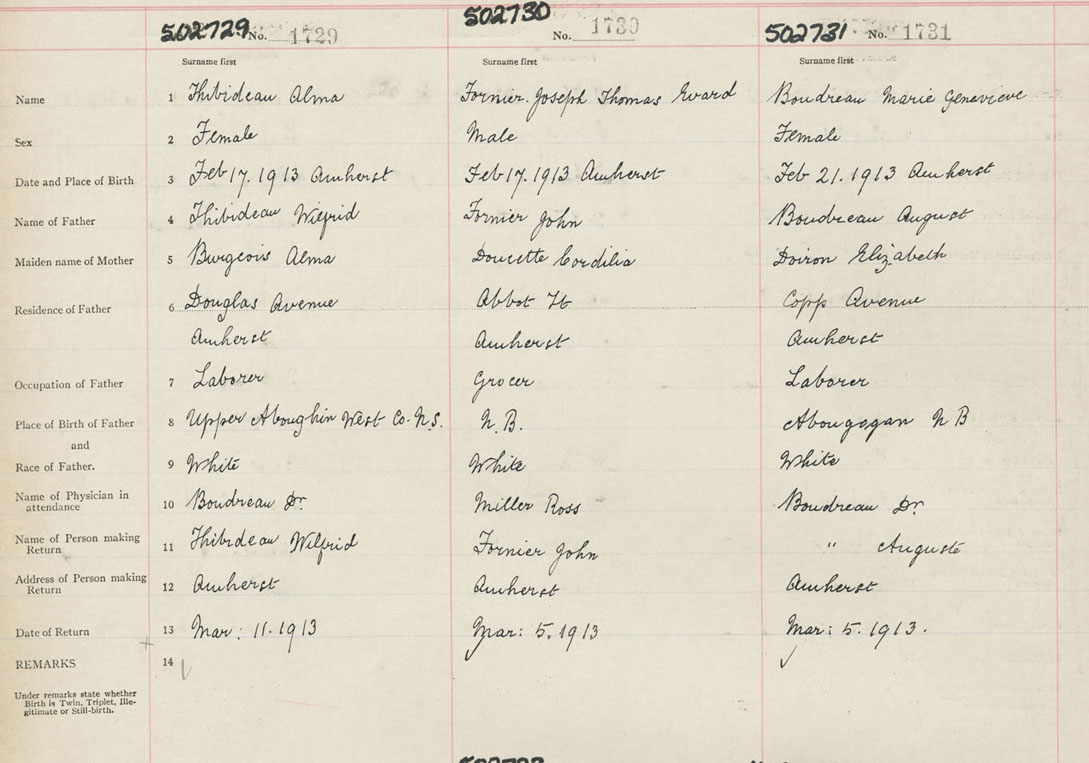 502729 No. 1729 502730 No. 1730 502731 No. 1731
Surname first Surname first Surname first
Name 1 Thibideau Alma Fornier. Joseph Thomas Evard Boudreau Marie Genevieve
Sex 2 Female Male Female
Date and Place of Birth 3 Feb 17. 1913 Amherst Feb 17. 1913 Amherst Feb 21. 1913 Amherst
Name of Father 4 Thibideau Wilfrid Fornier John Boudreau August
Maiden name of Mother 5 Burgeois Alma Doucette Cordilia Doiron Elizabeth
Residence of Father 6 Douglas Avenue Abbot St Copp Avenue
Amherst Amherst Amherst
Occupation of Father 7 Laborer Grocer Laborer
Place of Birth of Father 8 Upper Aboughin West Co. N.S. N.B. Abougogan N B
and
Race of Father. 9 White White White
Name of Physician in
attendance 10 Boudreau Dr. Miller Ross Boudreau Dr.
Name of Person making
Return 11 Thibideau Wilfrid Fornier John " Auguste
Address of Person making
Return 12 Amherst Amherst Amherst
Date of Return 13 Mar: 11. 1913 Mar: 5. 1913 Mar: 5. 1913.
REMARKS 14
Under remarks state whether
Birth is Twin, Triplet, Ille-
gitimate or Still-birth.